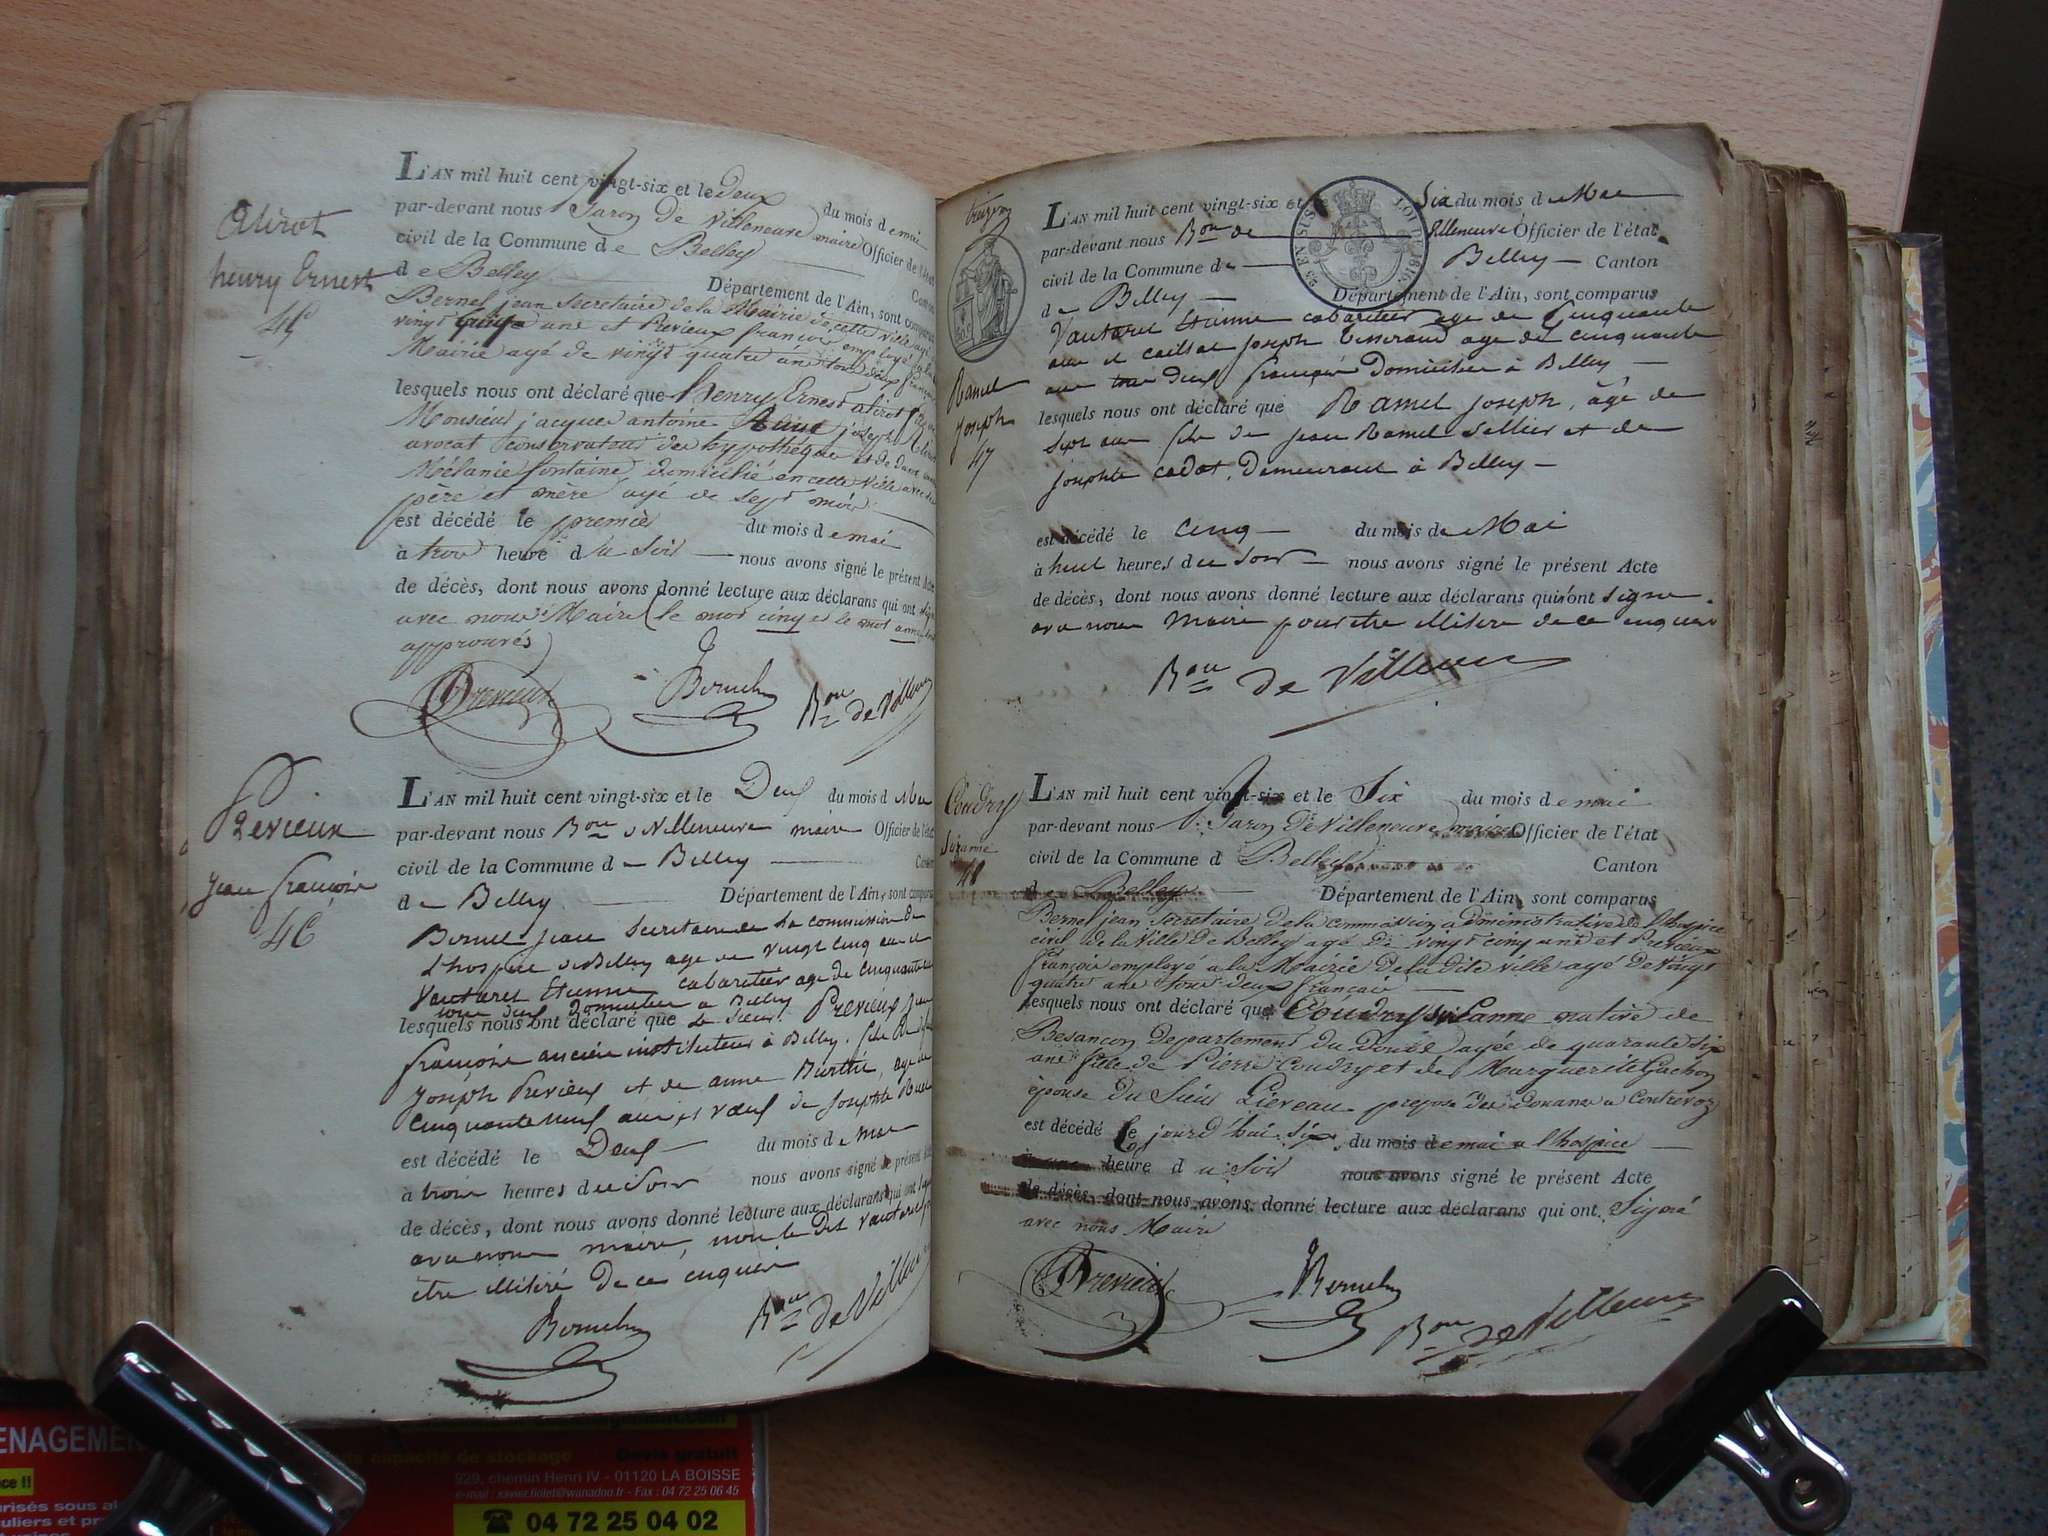 Alirot
henry Ernest
45
L'AN mil huit cent vingt-six et le deux du mois d e mai
par-devant nous Baron De Villeneuve maire Officier de l'état
civil de la Commune d e Belley
d e Belley Département de l'Ain, sont comparus
Bernel jean Secretaire de la Mairie de cette ville agé de
vingt cinq ans et Previeux françois employé
Mairie agé de vingt quatre ans tous deux français
lesquels nous ont déclaré que henry Ernest alirot
Monsieur jacques antoine joseph
avocat Conservateur des hypothéques et de Dame
Mélanie fontaine, domicilié en cette Ville avec
père et mère agé de Sept mois
est décédé le premier du mois d e mai
à trois heure d u Soir nous avons signé le présent Acte
de décès, dont nous avons donné lecture aux déclarans qui ont signé
avec nous Maire (le mot cinq et le mot
approuvés)
Previeux Bernel Bon de Villeneuve
Previeux
Jean françois
46
L'AN mil huit cent vingt-six et le Deux du mois d Mai
par-devant nous Bon de Villeneuve maire Officier de l'état
civil de la Commune d e Belley
d e Belley Département de l'Ain, sont comparus
Bernel Jean Secretaire de la commission de
L'hospice de Belley age de vingt cinq ans et
Vautaret Etienne cabaretier age de cinquante
tous deux Domiciliés à Belley
lesquels nous ont déclaré que le Sieur Previeux Jean
françois ancien instituteur à Belley, fils de
Joseph Previeux et de anne Burtin, age de
cinquante neuf ans et veuf de Josephte
est décédé le Deux du mois d e Mai
à trois heures d u Soir nous avons signé le présent
de décès, dont nous avons donné lecture aux déclarans qui ont
avec nous maire, non le dit Vautaret
être illitéré de ce enquis
Bernel Bon de Villeneuve
Ramel
Joseph
47
L'AN mil huit cent vingt-six et le Six du mois d e Mai
par-devant nous Bon de Villeneuve Officier de l'état
civil de la Commune d e Belley Canton
d e Belley Département de l'Ain, sont comparus
Vautaret Etienne cabaretier age de Cinquante
ans et caillat Joseph tisserand age de cinquante
ans tous deux français Domiciliés à Belley
lesquels nous ont déclaré que Ramel Joseph, âgé de
Sept ans fils de Jean Ramel Sellier et de
Josephte cadot, Demeurant à Belley
est décédé le cinq du mois d e Mai
à huit heures d u Soir nous avons signé le présent Acte
de décès, dont nous avons donné lecture aux déclarans qui ont signe
avec nous Maire pour être illitéré de ce enquis
Bon de Villeneuve
Coudry
Suzanne
48
L'AN mil huit cent vingt-six et le Six du mois d e mai
par-devant nous Baron De Villeneuve maire Officier de l'état
civil de la Commune d Belley Canton
d e Belley Département de l'Ain, sont comparus
Bernel jean Secretaire de la commission administrative de l'hospice
civil de la Ville de Belley agé de vingt cinq ans et Previeux
françois employé a la Mairie De la dite ville agé De vingt
quatre ans tous deux français
lesquels nous ont déclaré que Coudry suzanne native de
Besancon Departement du Doubs agée de quarante six
ans fille de Pierre Coudry et de Marguerite Gachon
épouse Du Sieur Liereau preposé des Douanes a Contrevoz
est décédé Ce jourd'hui six du mois d e mai a l'hospice
heure d u Soir nous avons signé le présent Acte
de décès, dont nous avons donné lecture aux déclarans qui ont Signé
avec nous Maire
Previeux Bernel Bon de Villeneuve
capacité de stockage Devis gratuit
929, chemin Henri IV - 01120 LA BOISSE
e-mail : xavier.fiolet@wanadoo.fr - Fax : 04 72 25 06 45
04 72 25 04 02